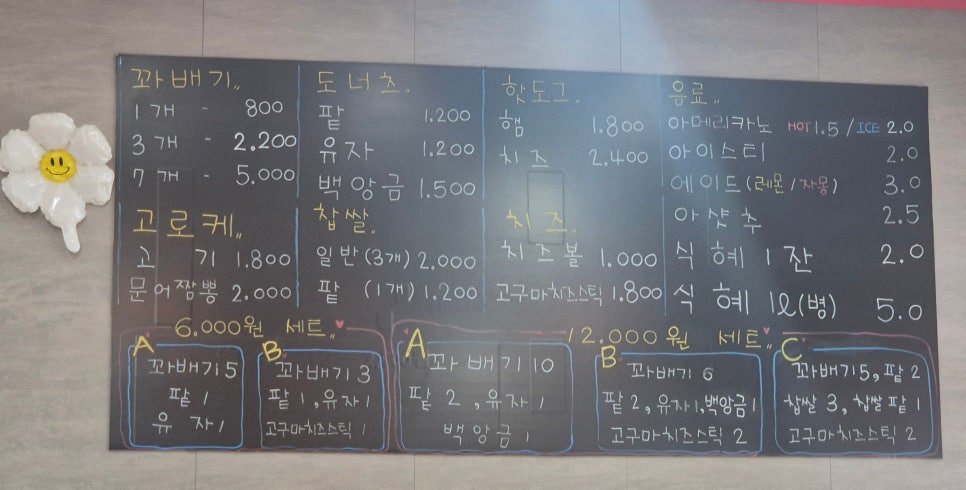 꽈배기〃
1개 - 800
3개 - 2.200
7개 - 5.000
고로케〃
고기 1.800
문어짬뽕 2.000
도너츠〃
팥 1.200
유자 1.200
백앙금 1.500
찹쌀〃
일반(3개) 2.000
팥 (1개) 1.200
핫도그〃
햄 1.800
치즈 2.400
치즈〃
치즈볼 1.000
고구마치즈스틱 1.800
음료〃
아메리카노 HOT 1.5 / ICE 2.0
아이스티 2.0
에이드(레몬/자몽) 3.0
아샷추 2.5
식혜 1잔 2.0
식혜 1l(병) 5.0
6.000원 세트〃♥
A
꽈배기 5
팥 1
유자 1
B
꽈배기 3
팥 1, 유자 1
고구마치즈스틱 1
12.000원 세트〃♥
A
꽈배기 10
팥 2, 유자 1
백앙금 1
B
꽈배기 6
팥 2, 유자 1, 백앙금 1
고구마치즈스틱 2
C
꽈배기 5, 팥 2
찹쌀 3, 찹쌀팥 1
고구마치즈스틱 2